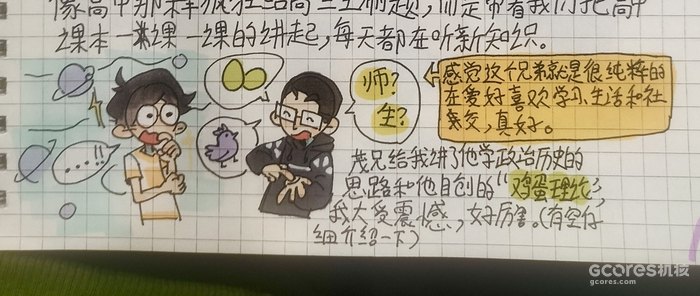 像高中那样疯狂给高三生刷题,而是带着我们把高中
课本一课一课的讲起,每天都在听新知识。
师?
生?
...!!
感觉这个兄弟就是很纯粹的
在爱好喜欢学习、生活和社
交,真好。
茂兄给我讲了他学政治历史的
思路和他自创的“鸡蛋理论”,
我大受震撼,好厉害。(有空仔
细介绍一下)
GCORES机核
gcores.com